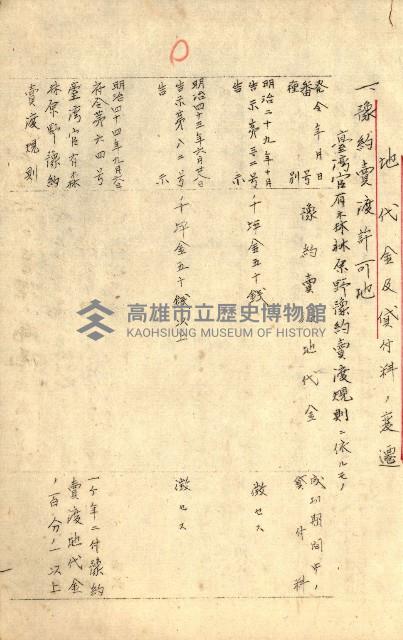 地代金及貸付料ノ変遷
一、豫約賣渡許可地
臺灣官有森林原野豫約賣渡規則ニ依ルモノ
発令年月日
番号
種別
豫約賣渡地代金
成功期間中ノ
貸付料
明治二十九年十月
告示第三二号
告示
千坪金五十錢
徴セス
明治四十三年六月廿八日
告示第八二号
告示
千坪金五十錢以上
徴セス
明治四十四年九月
府令第六四号
臺灣官有森
林原野豫約
賣渡規則
一ケ年ニ付豫約
賣渡地代金
ノ百分ノ一以上
高雄市立歷史博物館
KAOHSIUNG MUSEUM OF HISTORY